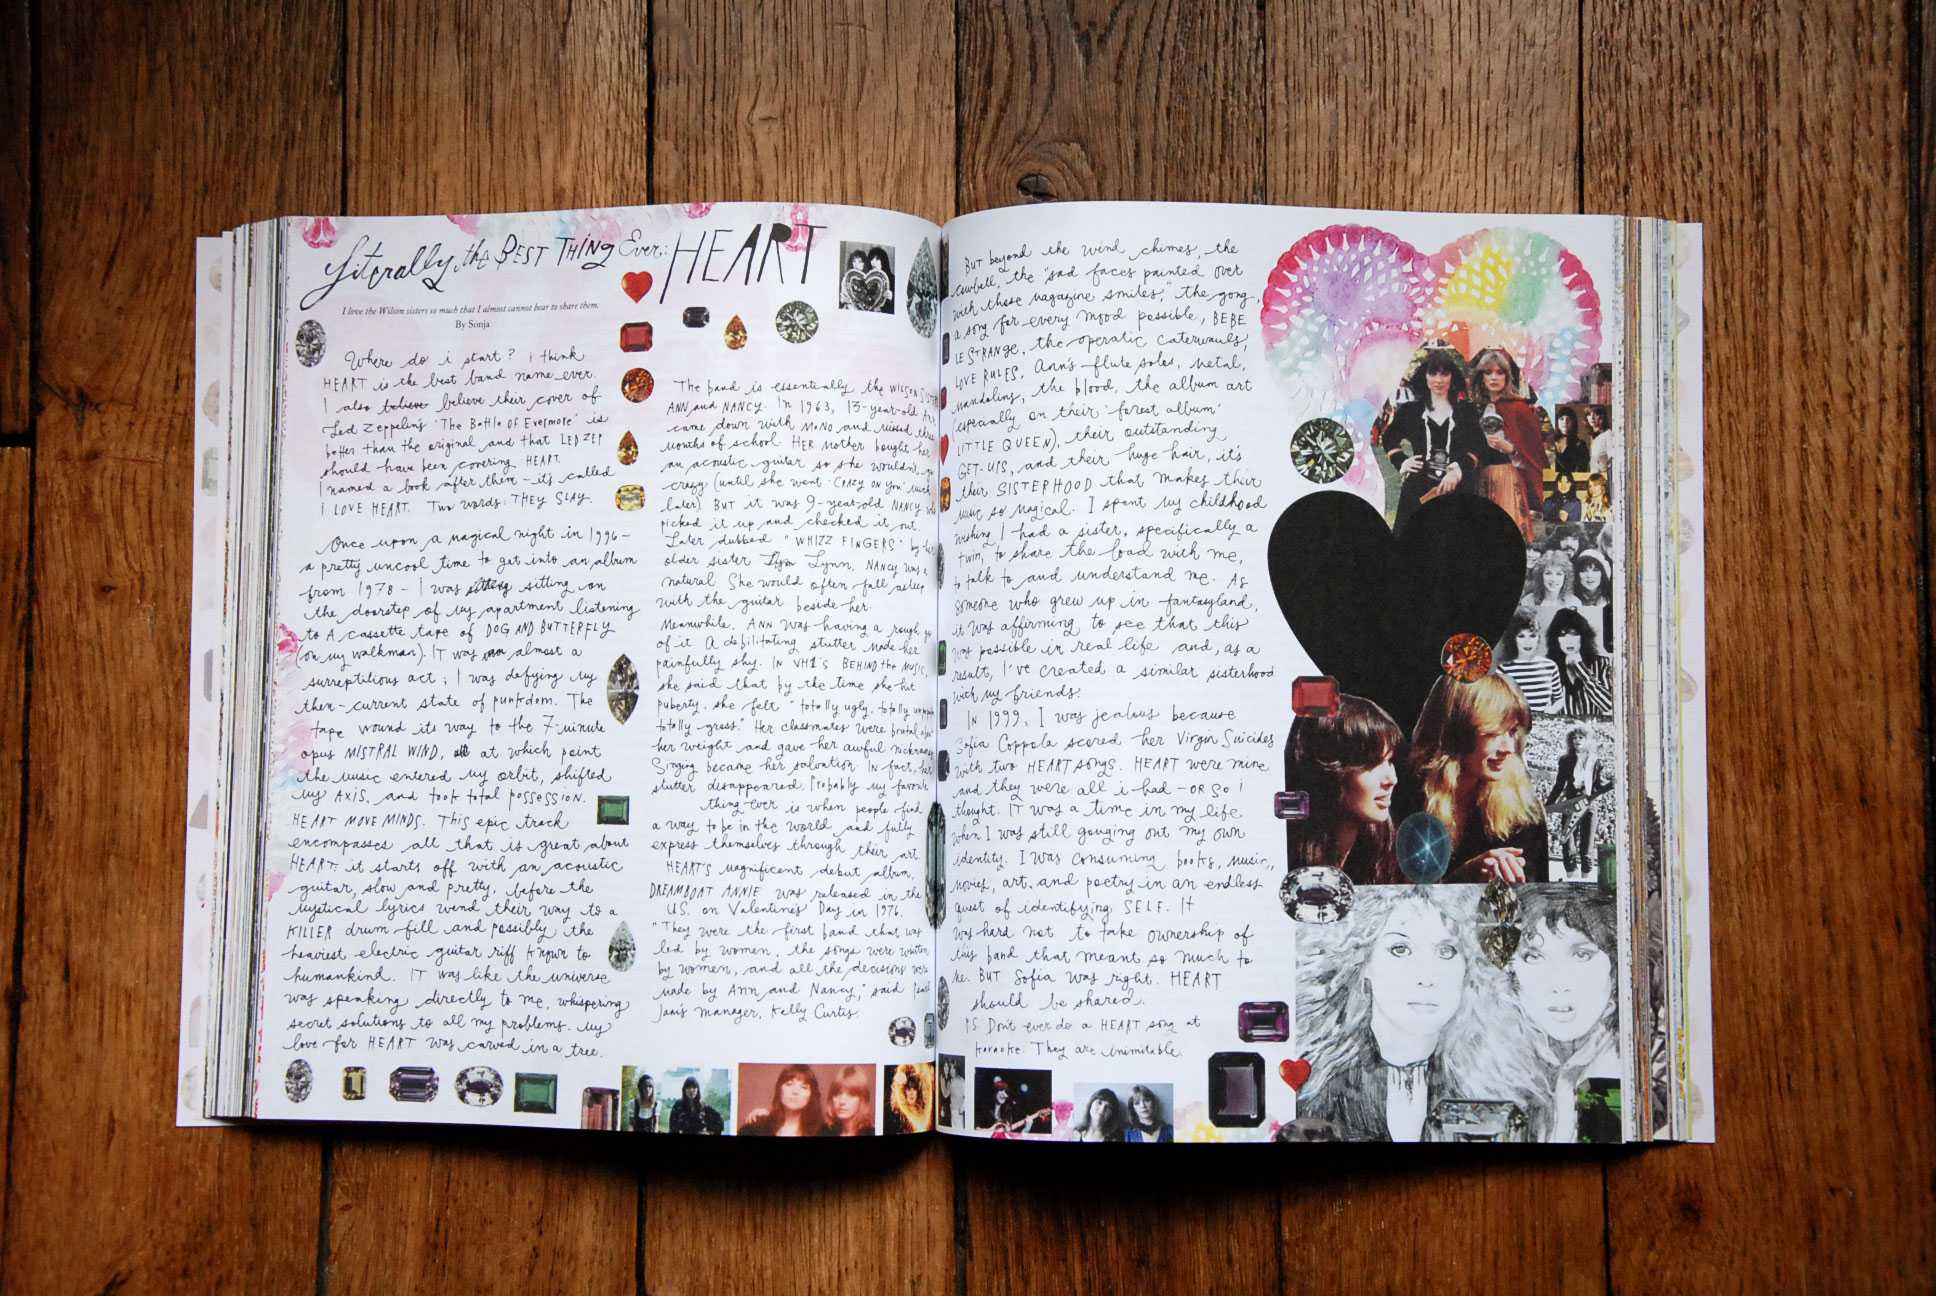 Literally the BEST THING Ever: HEART
I love the Wilson sisters so much that I almost cannot bear to share them.
By Sonja
Where do i start? i think
HEART is the best band name ever.
I also believe believe their cover of
Led Zeppelin's 'The Battle of Evermore' is
better than the original and that LED ZEP
should have been covering HEART.
I named a book after them – it's called
I LOVE HEART. Two words: THEY SLAY.
Once upon a magical night in 1996 –
a pretty uncool time to get into an album
from 1978 – I was sitting on
the doorstep of my apartment listening
to A cassette tape of DOG AND BUTTERFLY
(on my walkman). IT was almost a
surreptitious act; I was defying my
then-current state of punkdom. The
tape wound its way to the 7-minute
opus MISTRAL WIND, at which point
the music entered my orbit, shifted
my AXIS, and took total possession.
HEART MOVE MINDS. This epic track
encompasses all that is great about
HEART: it starts off with an acoustic
guitar, slow and pretty, before the
mystical lyrics wend their way to a
KILLER drum fill and possibly the
heaviest electric guitar riff known to
humankind. IT was like the universe
was speaking directly to me, whispering
secret solutions to all my problems. my
love for HEART was carved in a tree.
The band is essentially the WILSON
ANN and NANCY. In 1963, 13-year-old Ann
came down with MONO and missed three
months of school. HER mother bought her
an acoustic guitar so she wouldn't go
crazy (until she went 'CRAZY ON YOU' much
later). BUT it was 9-year-old NANCY who
picked it up and checked it out.
Later dubbed "WHIZZ FINGERS" by her
older sister Lynn, NANCY was a
natural She would often fall asleep
with the guitar beside her.
Meanwhile, ANN was having a rough go
of it A debilitating stutter made her
painfully shy. IN VH1'S BEHIND the MUSIC,
she said that by the time she hit
puberty, she felt "totally ugly, totally
totally gross." Her classmates were brutal about
her weight and gave her awful nicknames
Singing became her salvation IN fact, her
stutter disappeared. Probably my favorite
thing ever is when people find
a way to be in the world and fully
express themselves through their art.
HEART'S magnificent debut album,
DREAMBOAT ANNIE was released in the
U.S. on Valentine's Day in 1976.
"They were the first band that was
led by women, the songs were written
by women, and all the decisions were
made by Ann and Nancy," said
manager, Kelly Curtis.
BUT beyond the wind chimes, the
cowbell, the "sad faces painted over
with those magazine smiles," the gong,
a song for every mood possible, BEBE
LE STRANGE, the operatic caterwauls,
LOVE RULES, Ann's flute solos, metal,
mandolins, the blood, the album art
(especially on their 'forest album'
LITTLE QUEEN), their outstanding
GET-UPS, and their huge hair, it's
their SISTERHOOD that makes their
music so magical. I spent my childhood
wishing I had a sister, specifically a
twin, to share the load with me,
to talk to and understand me. As
someone who grew up in fantasyland,
it was affirming to see that this
was possible in real life and, as a
result, I've created a similar sisterhood
with my friends.
IN 1999, I was jealous because
Sofia Coppola scored her Virgin Suicides
with two HEART songs. HEART were mine
and they were all i had – OR SO I
thought. IT was a time in my life
when I was still gouging out my own
identity. I was consuming books, music,
movies, art, and poetry in an endless
quest of identifying SELF. It
was hard not to take ownership of
this band that meant so much to
me. BUT Sofia was right. HEART
should be shared.
PS Don't ever do a HEART song at
Karaoke. They are inimitable.